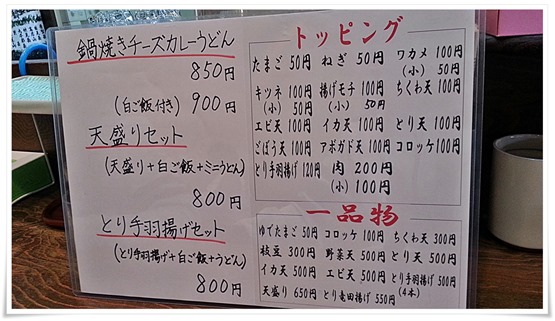 鍋焼きチーズカレーうどん
850円
(白ご飯付き) 900円
天盛りセット
(天盛り+白ご飯+ミニうどん)
800円
とり手羽揚げセット
(とり手羽揚げ+白ご飯+うどん)
800円
トッピング
たまご 50円 ねぎ 50円 ワカメ 100円
(小) 50円
キツネ 100円 揚げモチ 100円 ちくわ天 100円
(小) 50円 (小) 50円
エビ天 100円 イカ天 100円 とり天 100円
ごぼう天 100円 アボガド天 100円 コロッケ 100円
とり手羽揚げ 120円 肉 200円
(小) 100円
一品物
ゆでたまご 50円 コロッケ 100円 ちくわ天 300円
枝豆 300円 野菜天 500円 とり天 500円
イカ天 500円 エビ天 500円 とり手羽揚げ 500円
(4本)
天盛り 650円 とり竜田揚げ 550円